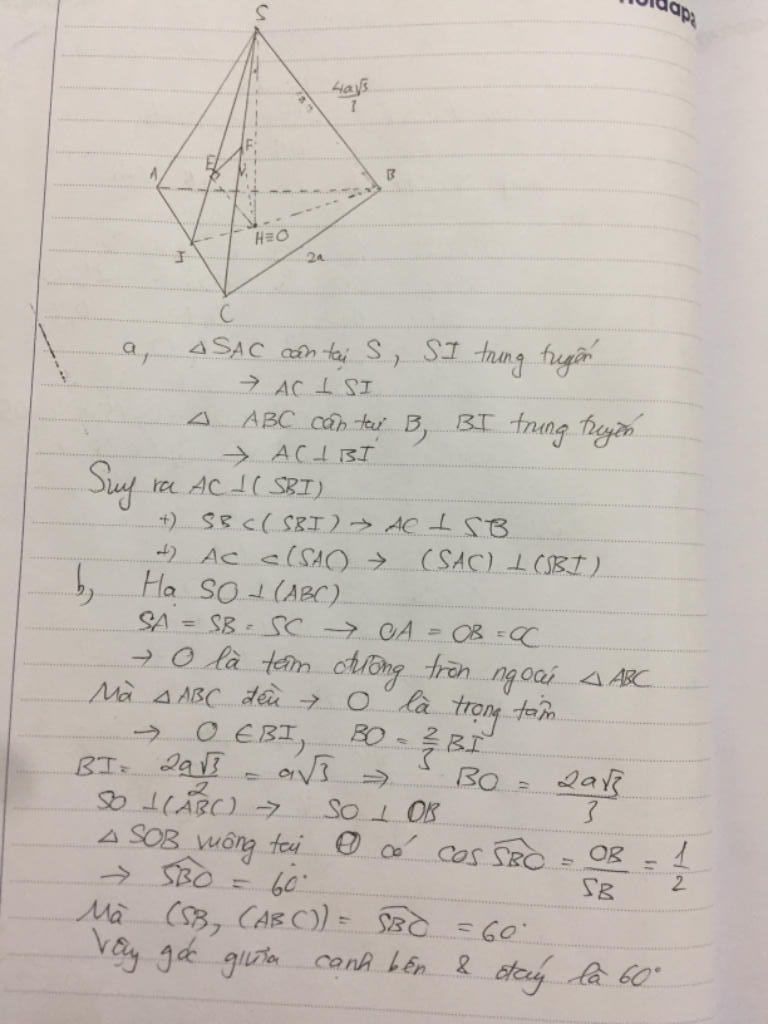 Hoidapa
S
4a√3/3
E
F
A
B
H≡O
I
2a
C
a, △SAC cân tại S, SI trung tuyến
→ AC ⊥ SI
△ ABC cân tại B, BI trung tuyến
→ AC ⊥ BI
Suy ra AC ⊥ (SBI)
+) SB ⊂ (SBI) → AC ⊥ SB
+) AC ⊂ (SAC) → (SAC) ⊥ (SBI)
b, Hạ SO ⊥ (ABC)
SA = SB = SC → OA = OB = OC
→ O là tâm đường tròn ngoại △ ABC
Mà △ABC đều → O là trọng tâm
→ O ∈ BI, BO = 2/3 BI
BI = 2a√3/2 = a√3 ⇒ BO = 2a√3/3
SO ⊥ (ABC) → SO ⊥ OB
△ SOB vuông tại O có cos SBO = OB/SB = 1/2
→ SBO = 60°
Mà (SB, (ABC)) = SBO = 60°
Vậy góc giữa cạnh bên & đáy là 60°